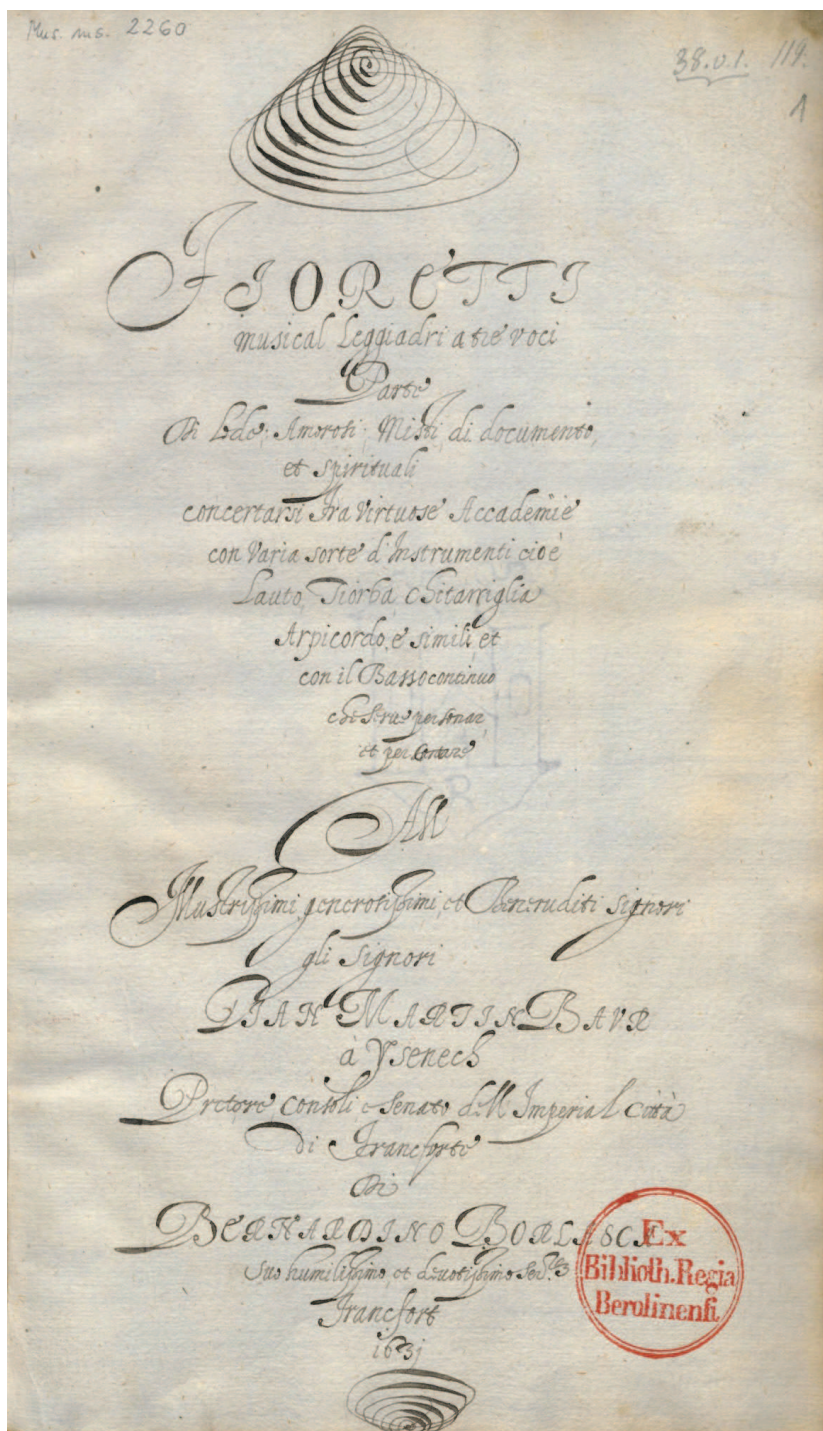 Mus. ms. 2260
38.v.1. 119.
1
FIORETTI
musical Leggiadri a tre voci
Parte
Di Lode, Amorosi, Misti, di documento,
et spirituali
concertarsi fra virtuose Accademie
con varia sorte d'Instrumenti cioè
Lauto, Tiorba, Chitarriglia
Arpicordo, e simili, et
con il Basso continuo
che serve per sonar,
et per cantare
All
Illustrissimi, generosissimi, et Beneruditi signori
gli signori
GIAN MARTIN BAVR
à Ysenech
Pretore Consoli e Senato dell Imperial Città
di Francforte
Di
BERNARDINO BORLASCA
suo humilissimo, et devotissimo
Francfort
1631
Ex
Biblioth. Regia
Berolinensi.